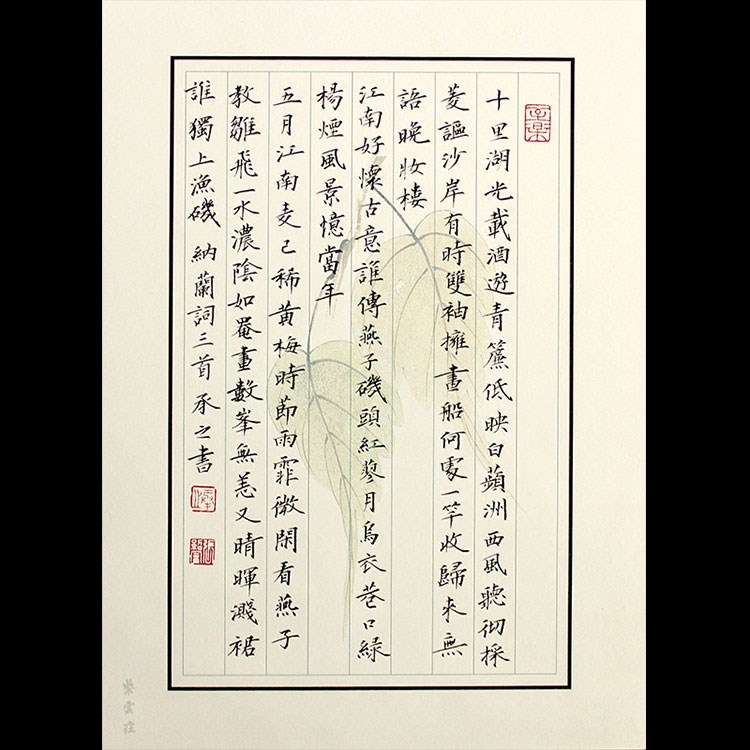 十里湖光載酒遊青簾低映白蘋洲西風聽彻採
菱謳沙岸有時雙袖擁畫船何處一竿收歸來無
語晚妝樓
江南好懷古意誰傳燕子磯頭紅蓼月烏衣巷口緑
楊煙風景憶當年
五月江南麦已稀黄梅時節雨霏微閑看燕子
教雛飛一水濃陰如罨畫數峯無恙又晴暉濺裙
誰獨上漁磯 納蘭詞三首承之書